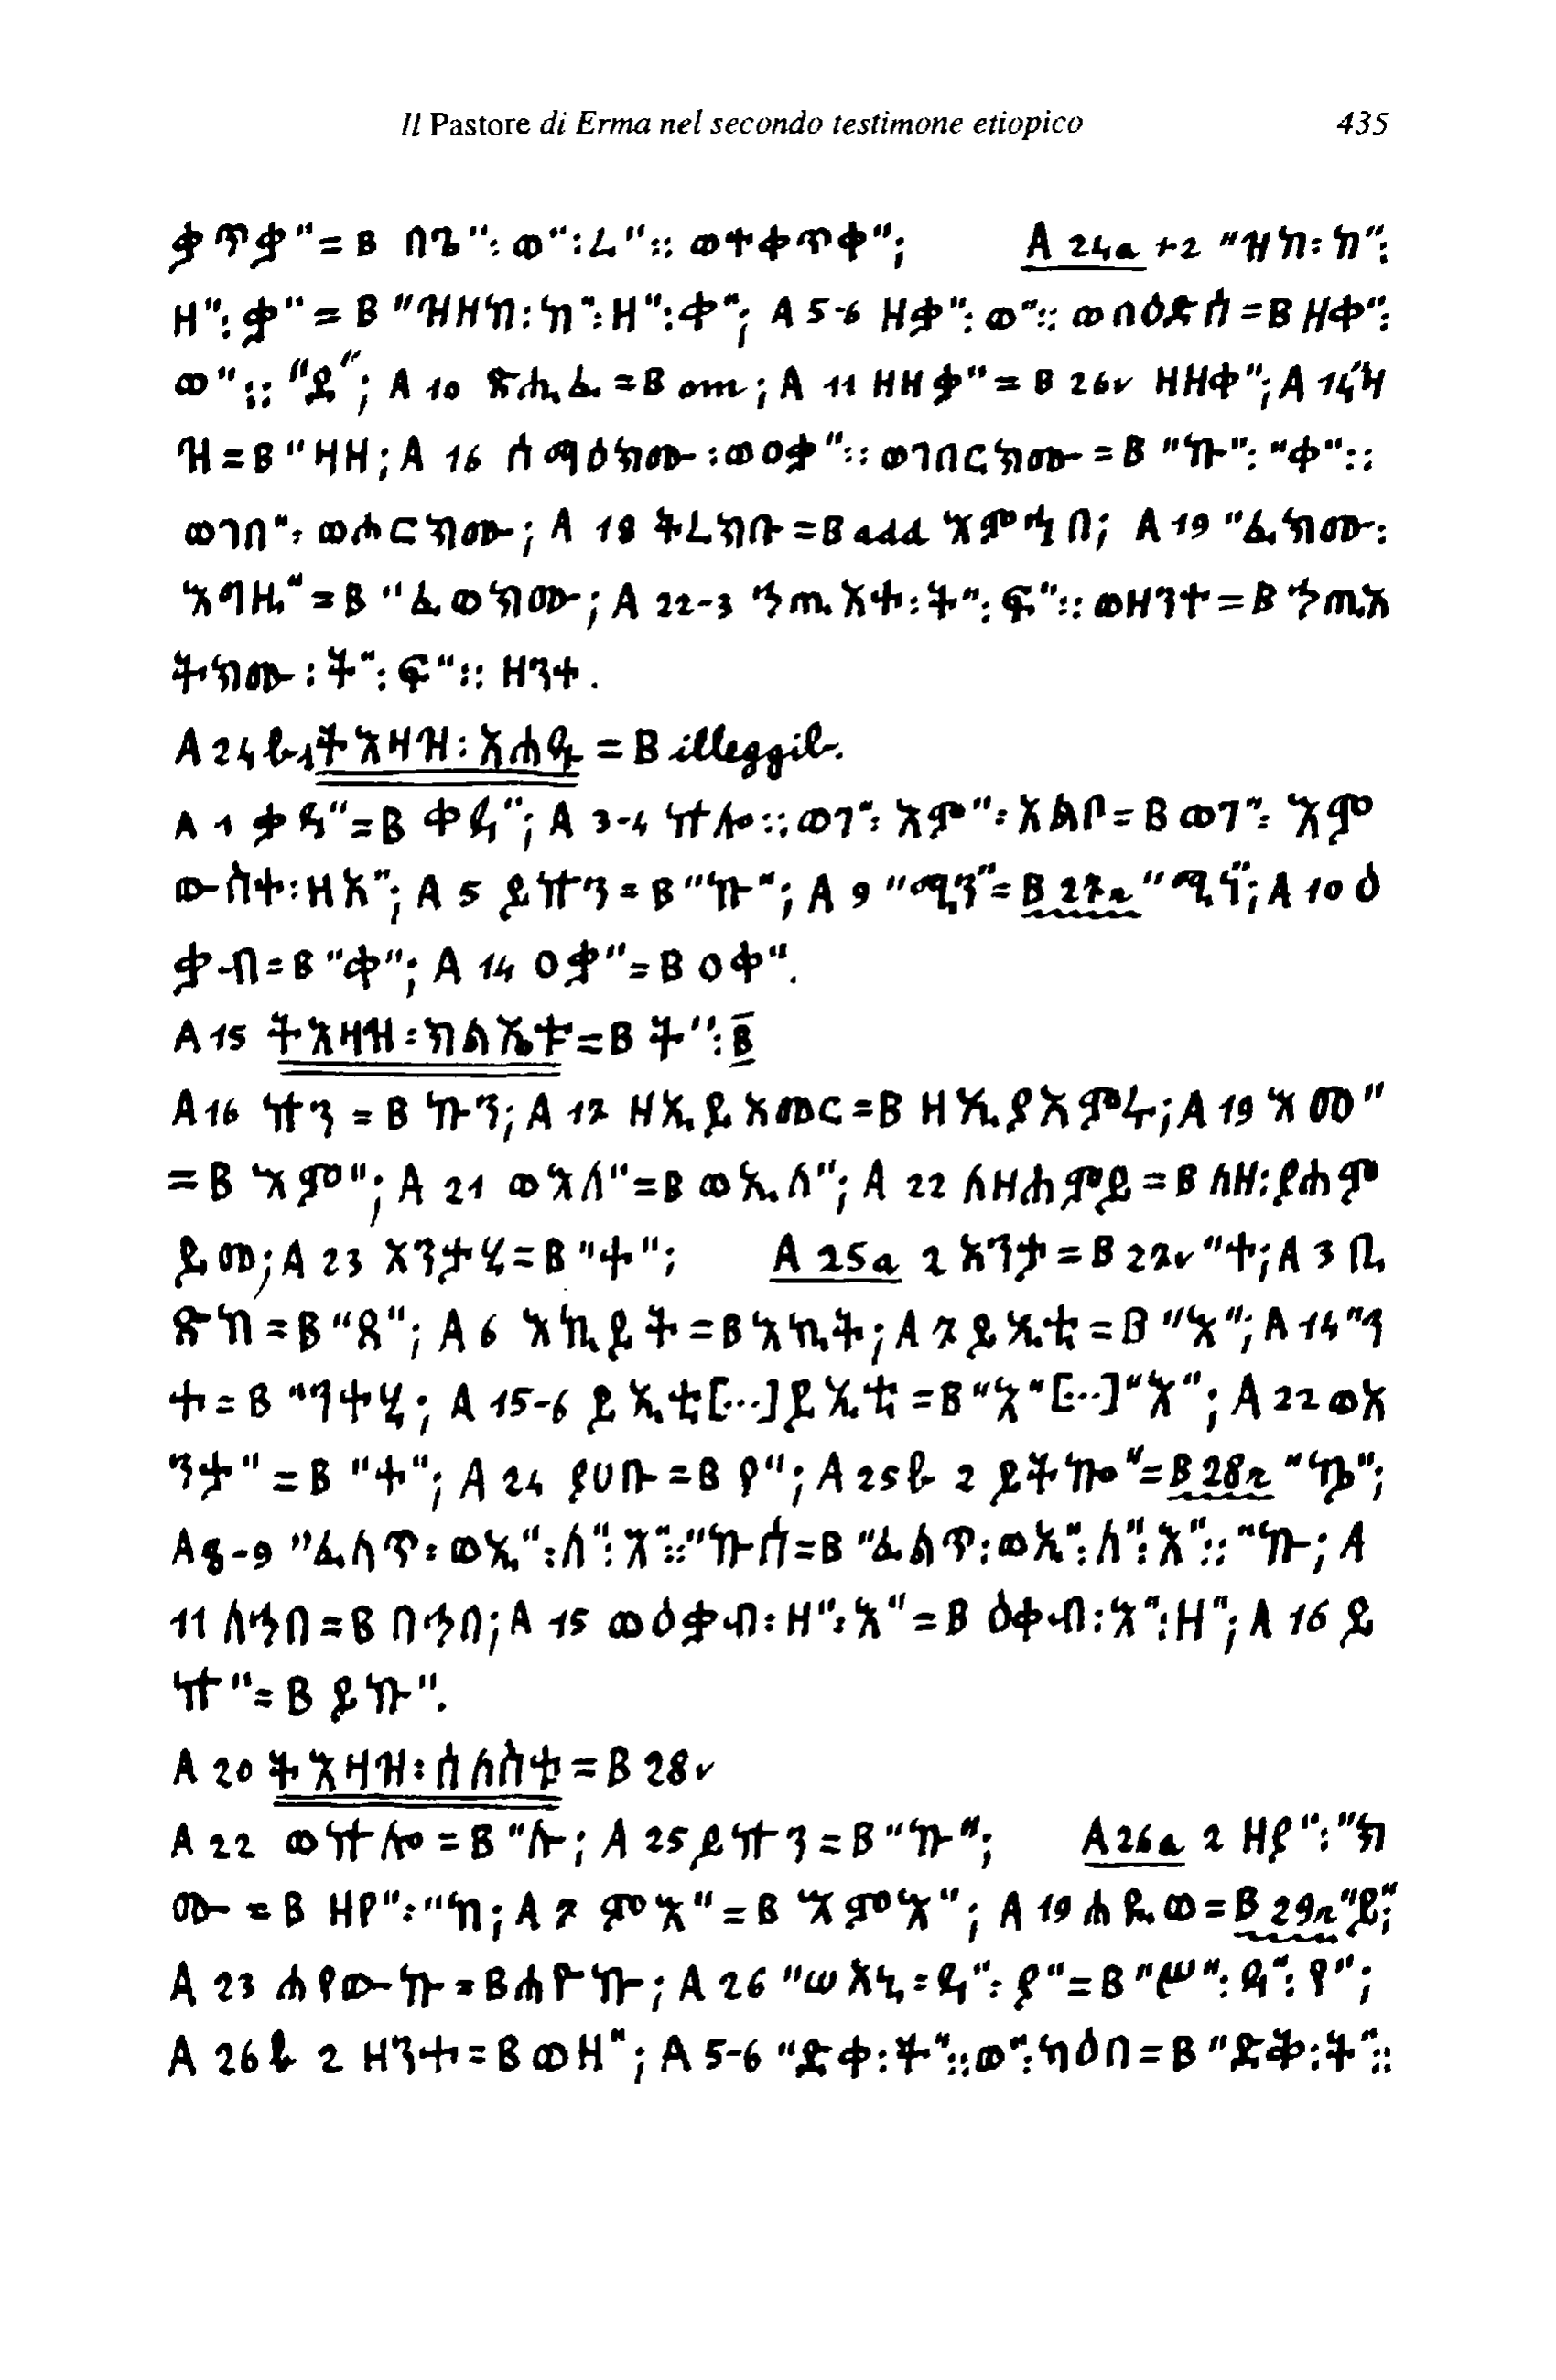 Il Pastore di Erma nel secondo testimone etiopico 435
ቃጥቃ"=B በጊ":ወ":ረ"።ወተቀጥቀ"; A 24a 1-2 "ዝከ:ከ":
ዘ":ቃ"=B "ዝዘከ:ከ":ዘ":ቀ"; A 5-6 ዘቃ":ወ"።ወበዕድሰ=B ዘቀ":
ወ"።"ደ"; A 10 ጽሒፈ=B om; A 11 ዘዘቃ"=B 26v ዘዘቀ"; A 14 "ዛ
ዝ=B "ዘዘ; A 16 ሰማዕክሙ:ወዐቃ"።ወገበርክሙ=B "ኩ":"ቀ"።
ወገበ":ወሐርክሙ; A 18 ትረክቡ=B add እምኀበ; A 19 "ፊክሙ:
እግዚ"=B "ፊወክሙ; A 22-3 ኀጢአተ:ት":ፍ"።ወዘንተ=B ኀጢአ
ትክሙ:ት":ፍ"።ዘንተ.
A 24b 1 ትእዛዝ:አሐዱ=B illeggib.
A 1 ቃዳ"=B ቀዳ"; A 3-4 ኵሎ።ወገ":እም":አልቦ=B ወገ":እም
ውስተ:ዘአ"; A 5 ይኵን=B "ኩ"; A 9 "ማን"=B 27r "ማኒ"; A 10 ዕ
ቃብ=B "ቀ"; A 14 ዐቃ"=B ዐቀ".
A 15 ትእዛዝ:ክልኤቱ=B ት":B̅
A 16 ኵን=B ኩን; A 17 ዘኢይአመር=B ዘኢያእምሩ; A 19 እመ"
=B እም"; A 21 ወእለ"=B ወኢለ"; A 22 ለዘሐምይ=B ለዘ:የሐም
ይመ; A 23 አንታሂ=B "ተ"; A 25a 2 አንታ=B 27v "ተ; A 3 ቢ
ጽከ=B "ጸ"; A 6 እኪይት=B እኪት; A 7 ይኢቲ=B "እ"; A 14 "ን
ተ=B "ንተሂ; A 15-6 ይኢቲ[...]ይኢቲ=B "እ"[...]"እ"; A 22 ወአ
ንታ"=B "ተ"; A 24 ያሀቡ=B የ"; A 25b 2 ይትከ"=B 28r "ኬ";
A 8-9 "ፊለጥ:ወኢ":ለ":እ"።"ኩሰ=B "ፊልጥ:ወኢ":ለ":እ"።"ኩ; A
11 ለኀበ=B በኀበ; A 15 ወዕቃብ:ዘ":እ"=B ዕቀብ:እ":ዘ"; A 16 ይ
ኵ"=B ይኩ".
A 20 ትእዛዝ:ሰለስቱ=B 28v
A 22 ወኵሎ=B "ሉ; A 25 ይኵን=B "ኩ"; A 26a 2 ዘያ":"ክ
ሙ=B ዘየ":"ከ; A 7 ምእ"=B እምእ"; A 19 ሐዪወ=B 29r "ይ";
A 23 ሐየውኩ=B ሐዮኩ; A 26 "ሠአኒ:ዲ":ያ"=B "ሡ":ዲ":የ";
A 26b 2 ዘንተ=B ወዘ"; A 5-6 "ድቀ:ት"።ወ":ከዕበ=B "ድቅ:ት"።